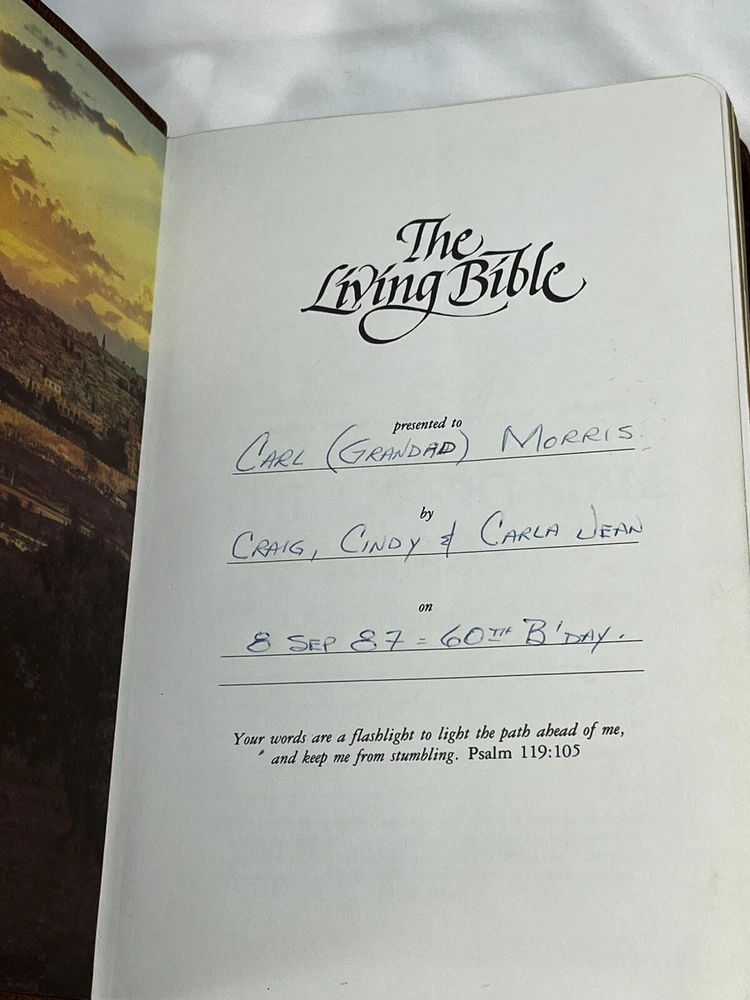 The
Living Bible
presented to
CARL (GRANDAD) MORRIS
by
CRAIG, CINDY & CARLA JEAN
on
8 SEP 87 = 60TH B'DAY.
Your words are a flashlight to light the path ahead of me,
and keep me from stumbling. Psalm 119:105